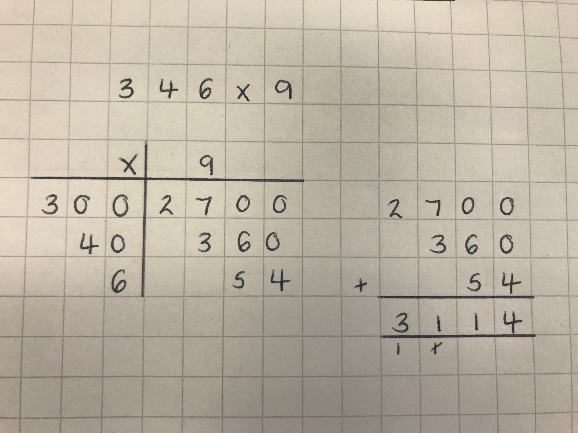 346 x 9
x 9
300 2700
40 360
6 54
2700
360
+ 54
3114
1 1